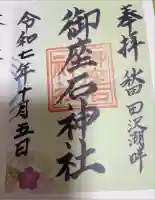 奉拝
秋田田沢湖畔
御座石神社
令和七年十月五日